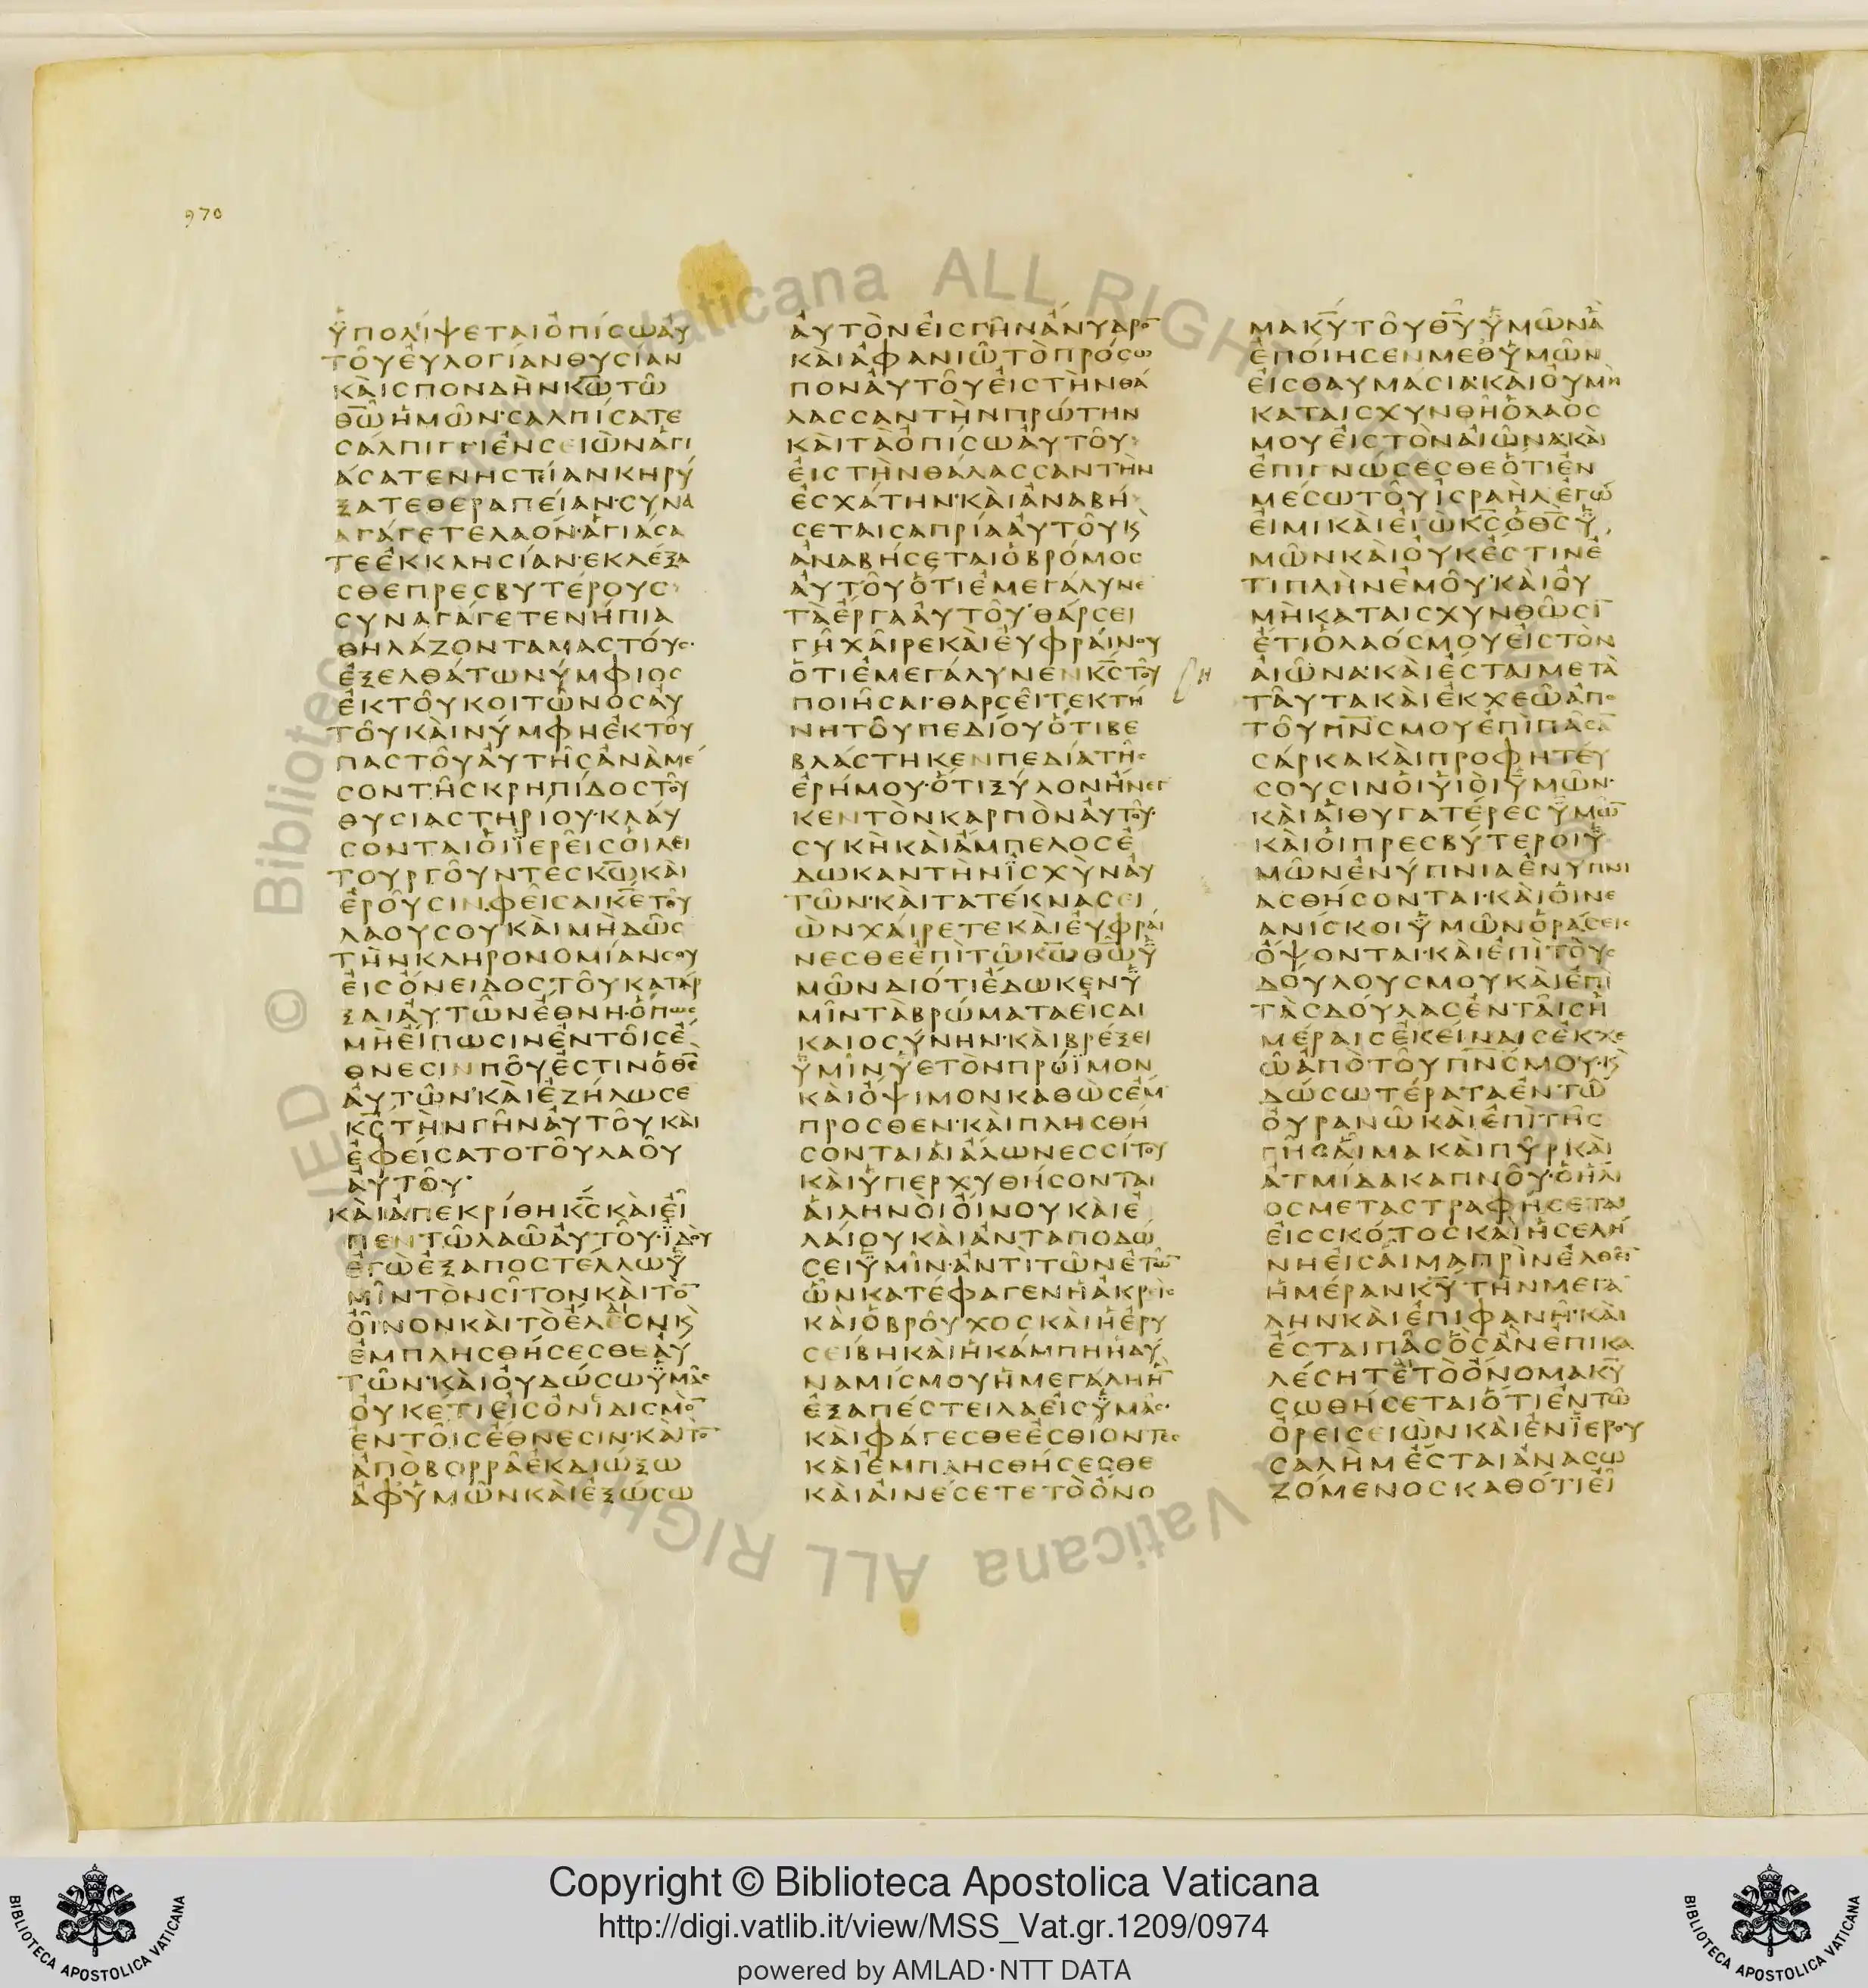 970
ὙΠΟΛΊΨΕΤΑΙὈΠΊCΩΑΥ
ΤΟΥΕΥΛΟΓΙΑΝΘΥCΙΑΝ
ΚΑΙCΠΟΝΔΗΝΚ̅Ω̅ΤΩ
Θ̅Ω̅ΗΜΩΝ·CΑΛΠΙCΑΤΕ
CΑΛΠΙΓΓΙΕΝCΕΙΩΝΑΓΙ
ΑCΑΤΕΝΗCΤΙΑΝΚΗΡΥ
ΞΑΤΕΘΕΡΑΠΕΙΑΝ·CΥΝΑ
ΑΓΑΓΕΤΕΛΑΟΝ·ΑΓΙΑCΑ
ΤΕΕΚΚΛΗCΙΑΝ·ΕΚΛΕΞΑ
CΘΕΠΡΕCΒΥΤΕΡΟΥC
CΥΝΑΓΑΓΕΤΕΝΗΠΙΑ
ΘΗΛΑΖΟΝΤΑΜΑCΤΟΥC·
ΕΞΕΛΘΑΤΩΝΥΜΦΙΟC
ΕΚΤΟΥΚΟΙΤΩΝΟCΑΥ
ΤΟΥΚΑΙΝΥΜΦΗΕΚΤΟΥ
ΠΑCΤΟΥΑΥΤΗCΑΝΑΜΕ
CΟΝΤΗCΚΡΗΠΙΔΟCΤΟΥ
ΘΥCΙΑCΤΗΡΙΟΥ·ΚΛΑΥ
CΟΝΤΑΙΟΙΙΕΡΕΙCΟΙΛΕΙ
ΤΟΥΡΓΟΥΝΤΕCΚ̅Ω̅ΚΑΙ
ΕΡΟΥCΙΝ·ΦΕΙCΑΙΚ̅Ε̅ΤΟΥ
ΛΑΟΥCΟΥΚΑΙΜΗΔΩC
ΤΗΝΚΛΗΡΟΝΟΜΙΑΝCΟΥ
ΕΙCΟΝΕΙΔΟCΤΟΥΚΑΤΑΡ
ΞΑΙΑΥΤΩΝΕΘΝΗ·ΟΠΩC
ΜΗΕΙΠΩCΙΝΕΝΤΟΙCΕ
ΘΝΕCΙΝΠΟΥΕCΤΙΝΟΘ̅C̅
ΑΥΤΩΝ·ΚΑΙΕΖΗΛΩCΕ
Κ̅C̅ΤΗΝΓΗΝΑΥΤΟΥΚΑΙ
ΕΦΕΙCΑΤΟΤΟΥΛΑΟΥ
ΑΥΤΟΥ·
ΚΑΙΑΠΕΚΡΙΘΗΚ̅C̅ΚΑΙΕΙ
ΠΕΝΤΩΛΑΩΑΥΤΟΥ·ΙΔΟΥ
ΕΓΩΕΞΑΠΟCΤΕΛΛΩΥ
ΜΙΝΤΟΝCΙΤΟΝΚΑΙΤΟ̅
ΟΙΝΟΝΚΑΙΤΟΕΛΕΟΝΚ
ΕΜΠΛΗCΘΗCΕCΘΕΑΥ
ΤΩΝ·ΚΑΙΟΥΔΩCΩΥΜΑC
ΟΥΚΕΤΙΕΙCΟΝΙΔΙCΜΟ̅
ΕΝΤΟΙCΕΘΝΕCΙΝ·ΚΑΙΤΟ̅
ΑΠΟΒΟΡΡΑΕΚΔΙΩΞΩ
ΑΦΥΜΩΝΚΑΙΕΞΩCΩ
ΑΥΤΟΝΕΙCΓΗΝΑΝΥΔΡΟ̅
ΚΑΙΑΦΑΝΙΩΤΟΠΡΟCΩ
ΠΟΝΑΥΤΟΥΕΙCΤΗΝΘΑ
ΛΑCCΑΝΤΗΝΠΡΩΤΗΝ
ΚΑΙΤΑΟΠΙCΩΑΥΤΟΥ
ΕΙCΤΗΝΘΑΛΑCCΑΝΤΗΝ
ΕCΧΑΤΗΝ·ΚΑΙΑΝΑΒΗ
CΕΤΑΙCΑΠΡΙΑΑΥΤΟΥΚ
ΑΝΑΒΗCΕΤΑΙΟΒΡΟΜΟC
ΑΥΤΟΥΟΤΙΕΜΕΓΑΛΥΝΕ
ΤΑΕΡΓΑΑΥΤΟΥ·ΘΑΡCΕΙ
ΓΗΧΑΙΡΕΚΑΙΕΥΦΡΑΙΝΟΥ
ΟΤΙΕΜΕΓΑΛΥΝΕΝΚ̅C̅ΤΟΥ
ΠΟΙΗCΑΙ·ΘΑΡCΕΙΤΕΚΤΗ
ΝΗΤΟΥΠΕΔΙΟΥΟΤΙΒΕ
ΒΛΑCΤΗΚΕΝΠΕΔΙΑΤΗC
ΕΡΗΜΟΥ·ΟΤΙΞΥΛΟΝΗΝΕΓ
ΚΕΝΤΟΝΚΑΡΠΟΝΑΥΤΟΥ·
CΥΚΗΚΑΙΑΜΠΕΛΟCΕ
ΔΩΚΑΝΤΗΝΙCΧΥΝΑΥ
ΤΩΝ·ΚΑΙΤΑΤΕΚΝΑCΕΙ
ΩΝΧΑΙΡΕΤΕΚΑΙΕΥΦΡΑΙ
ΝΕCΘΕΕΠΙΤΩΚ̅Ω̅Θ̅Ω̅Υ
ΜΩΝΔΙΟΤΙΕΔΩΚΕΝΥ
ΜΙΝΤΑΒΡΩΜΑΤΑΕΙCΔΙ
ΚΑΙΟCΥΝΗΝ·ΚΑΙΒΡΕΞΕΙ
ΥΜΙΝΥΕΤΟΝΠΡΩΙΜΟΝ
ΚΑΙΟΨΙΜΟΝΚΑΘΩCΕΜ
ΠΡΟCΘΕΝ·ΚΑΙΠΛΗCΘΗ
CΟΝΤΑΙΑΙΑΛΩΝΕCCΙΤΟΥ
ΚΑΙΥΠΕΡΧΥΘΗCΟΝΤΑΙ
ΑΙΛΗΝΟΙΟΙΝΟΥΚΑΙΕ
ΛΑΙΟΥΚΑΙΑΝΤΑΠΟΔΩ
CΕΙΥΜΙΝ·ΑΝΤΙΤΩΝΕΤΩ̅
ΩΝΚΑΤΕΦΑΓΕΝΗΑΚΡΙC
ΚΑΙΟΒΡΟΥΧΟCΚΑΙΗΕΡΥ
CΕΙΒΗΚΑΙΗΚΑΜΠΗΗΔΥ
ΝΑΜΙCΜΟΥΗΜΕΓΑΛΗΗ̅
ΕΞΑΠΕCΤΕΙΛΑΕΙCΥΜΑC·
ΚΑΙΦΑΓΕCΘΕΕCΘΙΟΝΤΕC
ΚΑΙΕΜΠΛΗCΘΗCΕCΘΕ
ΚΑΙΑΙΝΕCΕΤΕΤΟΟΝΟ
ΜΑΚ̅Υ̅ΤΟΥΘ̅Υ̅ΥΜΩΝΑ
ΕΠΟΙΗCΕΝΜΕΘΥΜΩΝ
ΕΙCΘΑΥΜΑCΙΑ·ΚΑΙΟΥΜΗ
ΚΑΤΑΙCΧΥΝΘΗΟΛΑΟC
ΜΟΥΕΙCΤΟΝΑΙΩΝΑ·ΚΑΙ
ΕΠΙΓΝΩCΕCΘΕΟΤΙΕΝ
ΜΕCΩΤΟΥΙCΡΑΗΛΕΓΩ
ΕΙΜΙΚΑΙΕΓΩΚ̅C̅ΟΘ̅C̅Υ
ΜΩΝΚΑΙΟΥΚΕCΤΙΝΕ
ΤΙΠΛΗΝΕΜΟΥ·ΚΑΙΟΥ
ΜΗΚΑΤΑΙCΧΥΝΘΩCΙ̅
ΕΤΙΟΛΑΟCΜΟΥΕΙCΤΟΝ
ΑΙΩΝΑ·ΚΑΙΕCΤΑΙΜΕΤΑ
ΤΑΥΤΑΚΑΙΕΚΧΕΩΑΠΟ
ΤΟΥΠ̅Ν̅C̅ΜΟΥΕΠΙΠΑCΑ̅
CΑΡΚΑΚΑΙΠΡΟΦΗΤΕΥ
CΟΥCΙΝΟΙΥΙΟΙΥΜΩΝ·
ΚΑΙΑΙΘΥΓΑΤΕΡΕCΥΜΩ̅
ΚΑΙΟΙΠΡΕCΒΥΤΕΡΟΙΥ
ΜΩΝΕΝΥΠΝΙΑΕΝΥΠΝΙ
ΑCΘΗCΟΝΤΑΙ·ΚΑΙΟΙΝΕ
ΑΝΙCΚΟΙΥΜΩΝΟΡΑCΕΙC
ΟΨΟΝΤΑΙ·ΚΑΙΕΠΙΤΟΥC
ΔΟΥΛΟΥCΜΟΥΚΑΙΕΠΙ
ΤΑCΔΟΥΛΑCΕΝΤΑΙCΗ
ΜΕΡΑΙCΕΚΕΙΝΑΙCΕΚΧΕ
ΩΑΠΟΤΟΥΠ̅Ν̅C̅ΜΟΥ·Κ
ΔΩCΩΤΕΡΑΤΑΕΝΤΩ
ΟΥΡΑΝΩΚΑΙΕΠΙΤΗC
ΓΗCΑΙΜΑΚΑΙΠΥΡΚΑΙ
ΑΤΜΙΔΑΚΑΠΝΟΥ·ΟΗΛΙ
ΟCΜΕΤΑCΤΡΑΦΗCΕΤΑΙ
ΕΙCCΚΟΤΟCΚΑΙΗCΕΛΗ
ΝΗΕΙCΑΙΜΑΠΡΙΝΕΛΘΕΙ̅
ΗΜΕΡΑΝΚ̅Υ̅ΤΗΝΜΕΓΑ
ΛΗΝΚΑΙΕΠΙΦΑΝΗ·ΚΑΙ
ΕCΤΑΙΠΑCΟCΑΝΕΠΙΚΑ
ΛΕCΗΤΕΤΟΟΝΟΜΑΚ̅Υ̅
CΩΘΗCΕΤΑΙΟΤΙΕΝΤΩ
ΟΡΕΙCΕΙΩΝΚΑΙΕΝΙΕΡΟΥ
CΑΛΗΜΕCΤΑΙΑΝΑCΩ
ΖΟΜΕΝΟCΚΑΘΟΤΙΕΙ
© Biblioteca Apostolica Vaticana ALL RIGHTS RESERVED
Copyright © Biblioteca Apostolica Vaticana
http://digi.vatlib.it/view/MSS_Vat.gr.1209/0974
powered by AMLAD·NTT DATA
BIBLIOTECA APOSTOLICA VATICANA
BIBLIOTECA APOSTOLICA VATICANA